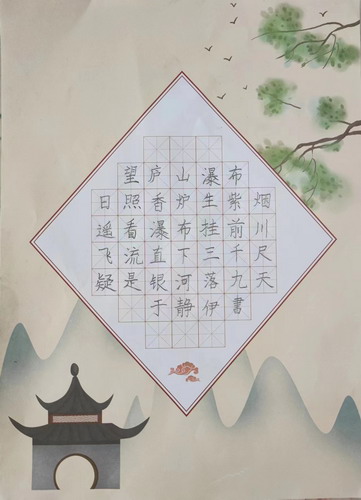 望庐山瀑布
日照香炉生紫烟
遥看瀑布挂前川
飞流直下三千尺
疑是银河落九天
于静伊書